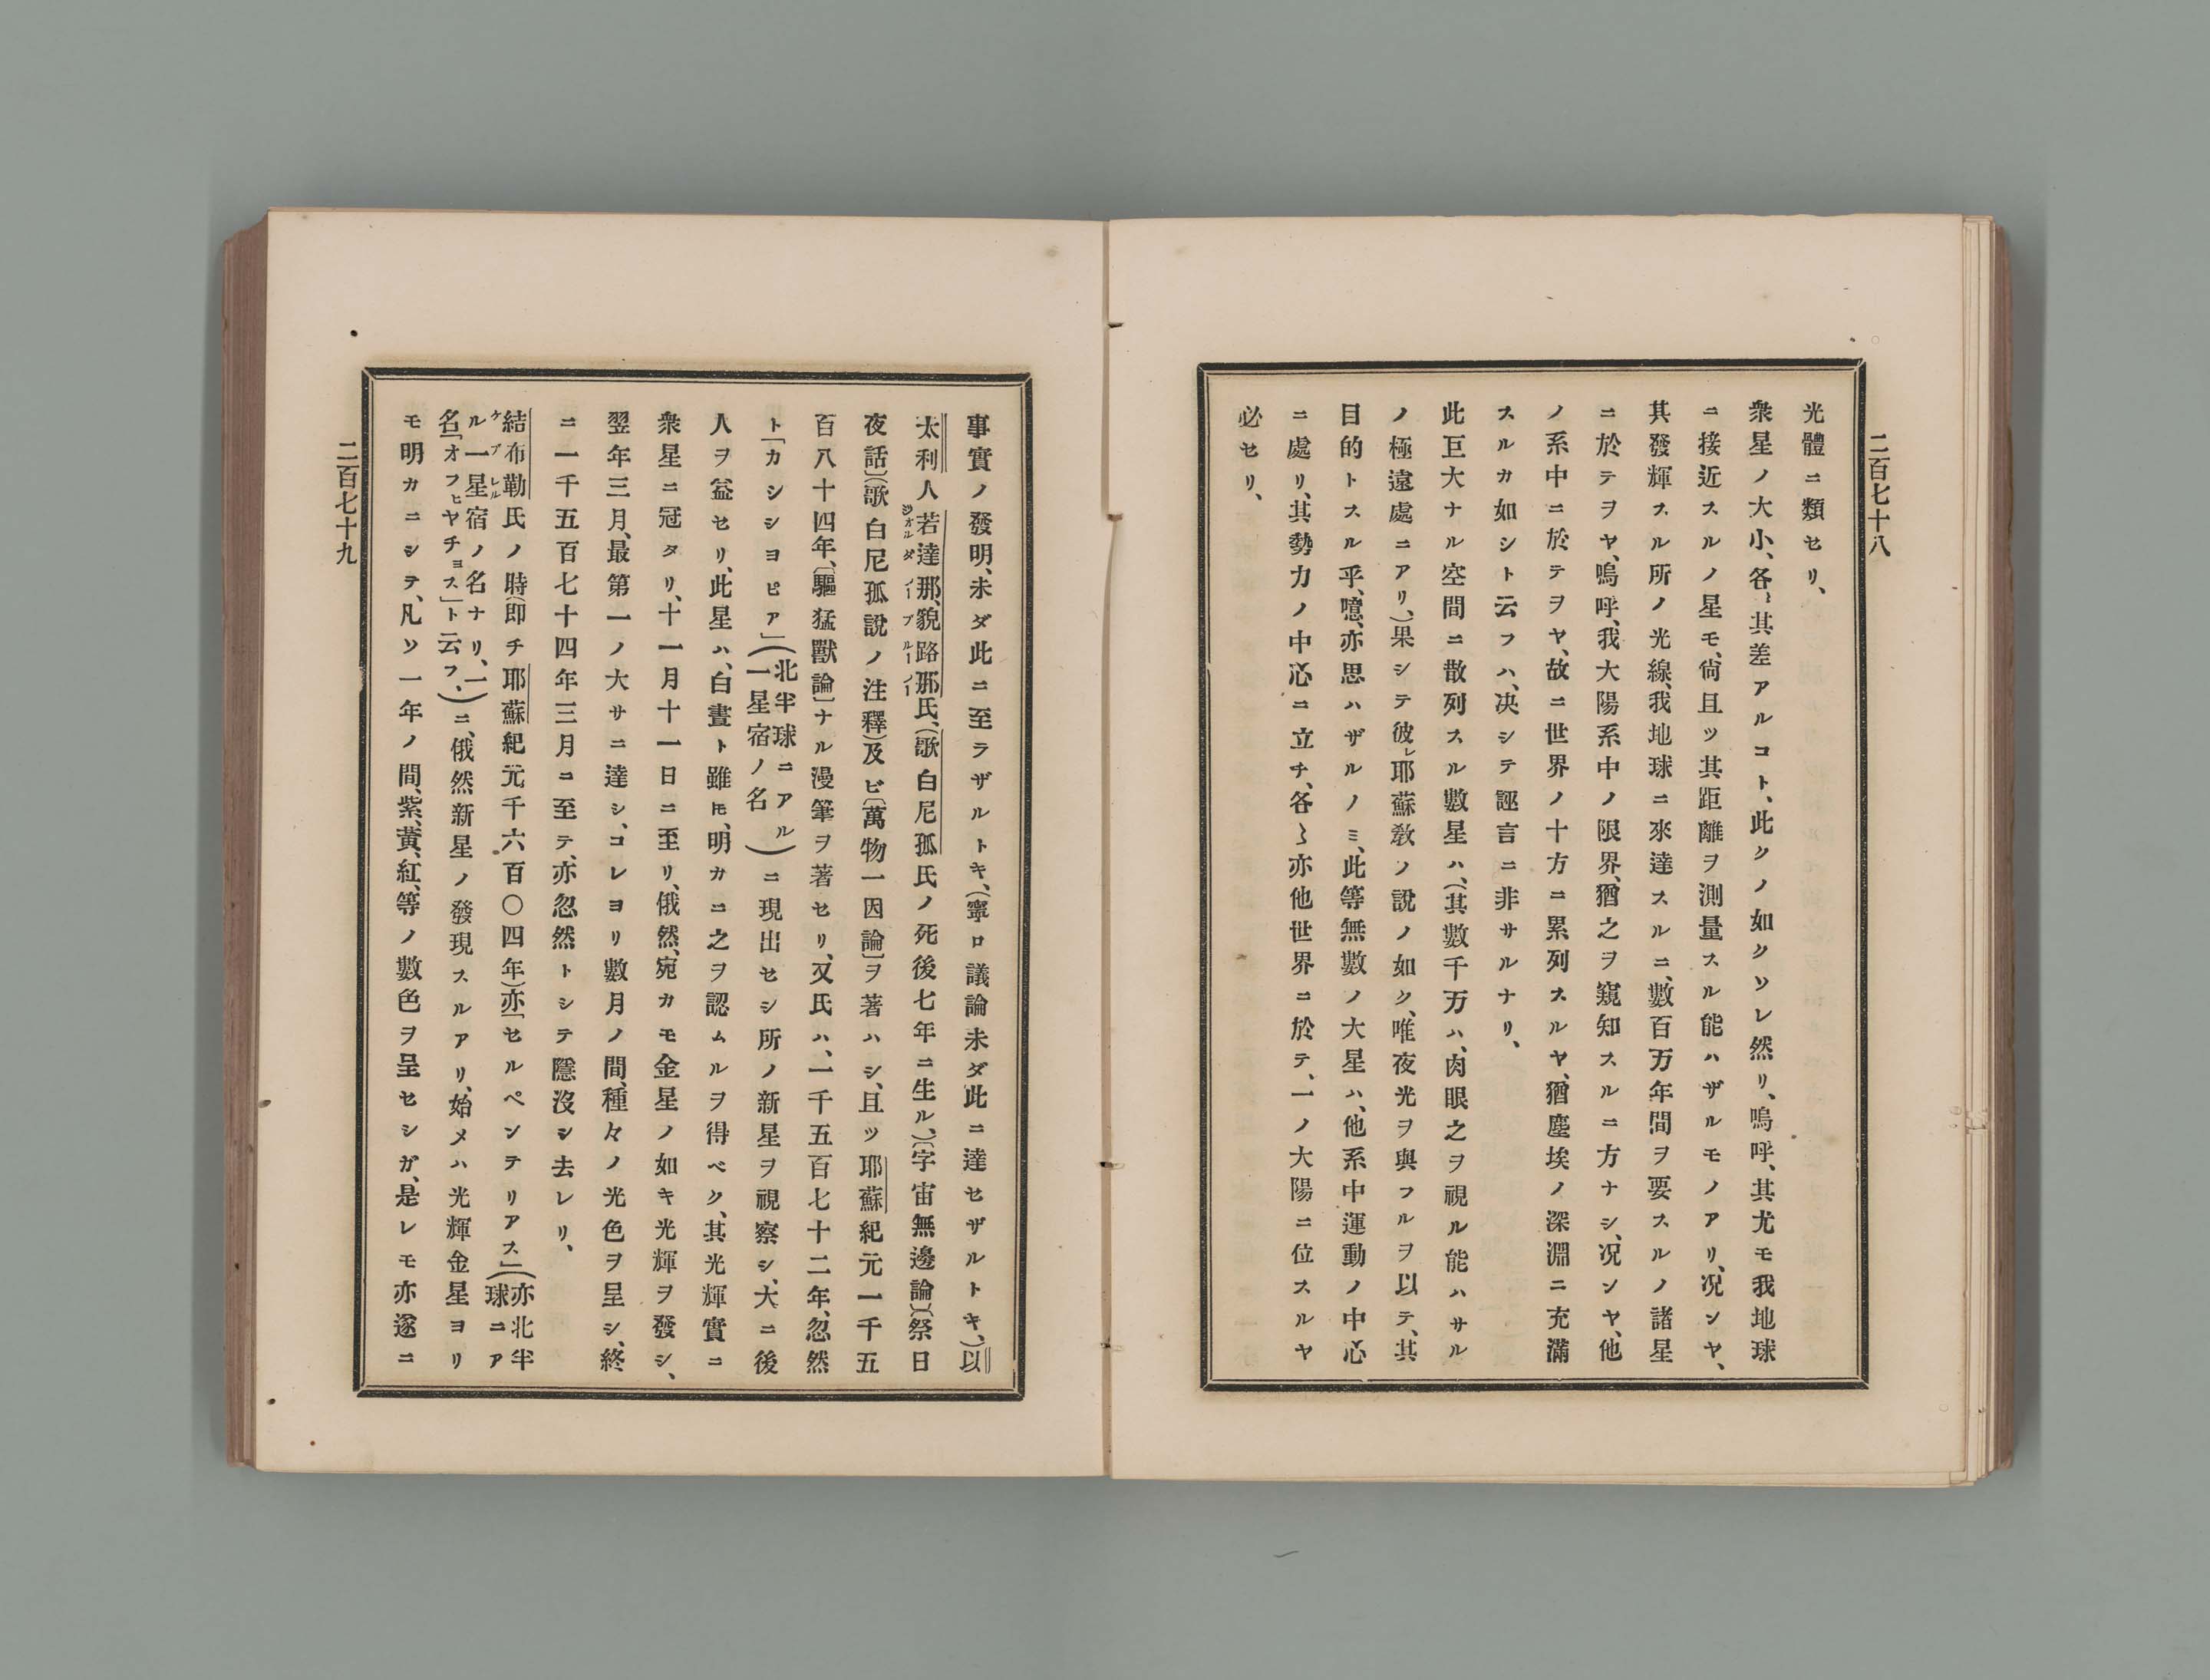 二百七十八
光體ニ類セリ、
衆星ノ大小、各〻其差アルコト、此クノ如クソレ然リ、嗚呼、其尤モ我地球
ニ接近スルノ星モ、尙且ツ其距離ヲ測量スル能ハザルモノアリ、况ンヤ、
其發輝スル所ノ光線、我地球ニ來達スルニ、數百万年間ヲ要スルノ諸星
ニ於テヲヤ、嗚呼、我大陽系中ノ限界、猶之ヲ窺知スルニ方ナシ、况ンヤ、他
ノ系中ニ於テヲヤ、故ニ世界ノ十方ニ累列スルヤ、猶塵埃ノ深淵ニ充滿
スルカ如シト云フハ、决シテ誣言ニ非サルナリ、
此巨大ナル空間ニ散列スル數星ハ、(其數千万ハ、肉眼之ヲ視ル能ハサル
ノ極遠處ニアリ、)果シテ彼レ耶蘇敎ノ說ノ如ク、唯夜光ヲ與フルヲ以テ、其
目的トスル乎、噫、亦思ハザルノミ、此等無數ノ大星ハ、他系中運動ノ中心
ニ處リ、其勢力ノ中心ニ立チ、各〻亦他世界ニ於テ、一ノ大陽ニ位スルヤ
必セリ、
事實ノ發明、未ダ此ニ至ラザルトキ、(寧ロ議論未ダ此ニ達セザルトキ、)以
太利人若達那、貌路那氏、(歌白尼孤氏ノ死後七年ニ生ル、)〔宇宙無邊論〕〔祭日
夜話〕(歌白尼孤說ノ注釋)及ビ〔萬物一因論〕ヲ著ハシ、且ツ耶蘇紀元一千五
百八十四年、〔驅猛獸論〕ナル漫筆ヲ著セリ、又氏ハ、一千五百七十二年、忽然
ト「カシシヨピア」(北半球ニアル一星宿ノ名)ニ現出セシ所ノ新星ヲ視察シ、大ニ後
人ヲ益セリ、此星ハ、白晝ト雖𪜈、明カニ之ヲ認ムルヲ得ベク、其光輝實ニ
衆星ニ冠タリ、十一月十一日ニ至リ、俄然、宛カモ金星ノ如キ光輝ヲ發シ、
翌年三月、最第一ノ大サニ達シ、コレヨリ數月ノ間、種々ノ光色ヲ呈シ、終
ニ一千五百七十四年三月ニ至テ、亦忽然トシテ隱沒シ去レリ、
結布勒氏ノ時(即チ耶蘇紀元千六百〇四年)亦「セルペンテリアス」(亦北半球ニア
ル一星宿ノ名ナリ、一名「オフヒヤチヨス」ト云フ、)ニ、俄然新星ノ發現スルアリ、始メハ光輝金星ヨリ
モ明カニシテ、凡ソ一年ノ間、紫、黃、紅、等ノ數色ヲ呈セシガ、是レモ亦遂ニ
二百七十九